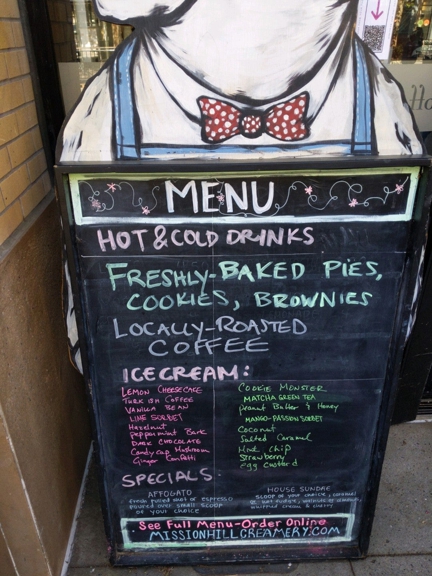 MENU
HOT & COLD DRINKS
FRESHLY-BAKED PIES,
COOKIES, BROWNIES
LOCALLY-ROASTED
COFFEE
ICE CREAM:
LEMON CHEESECAKE
TURKISH COFFEE
VANILLA BEAN
LIME SORBET
Hazelnut
Peppermint Bark
DARK CHOCOLATE
Candycap Mushroom
Ginger Confetti
COOKIE MONSTER
MATCHA GREEN TEA
Peanut Butter & Honey
MANGO-PASSION SORBET
Coconut
Salted Caramel
Mint Chip
Strawberry
egg custard
SPECIALS
AFFOGATO
fresh pulled shot of espresso
poured over small scoop
of your choice
HOUSE SUNDAE
SCOOP of your choice, caramel
whipped cream &
See Full Menu-Order Online
MISSIONHILLCREAMERY.COM